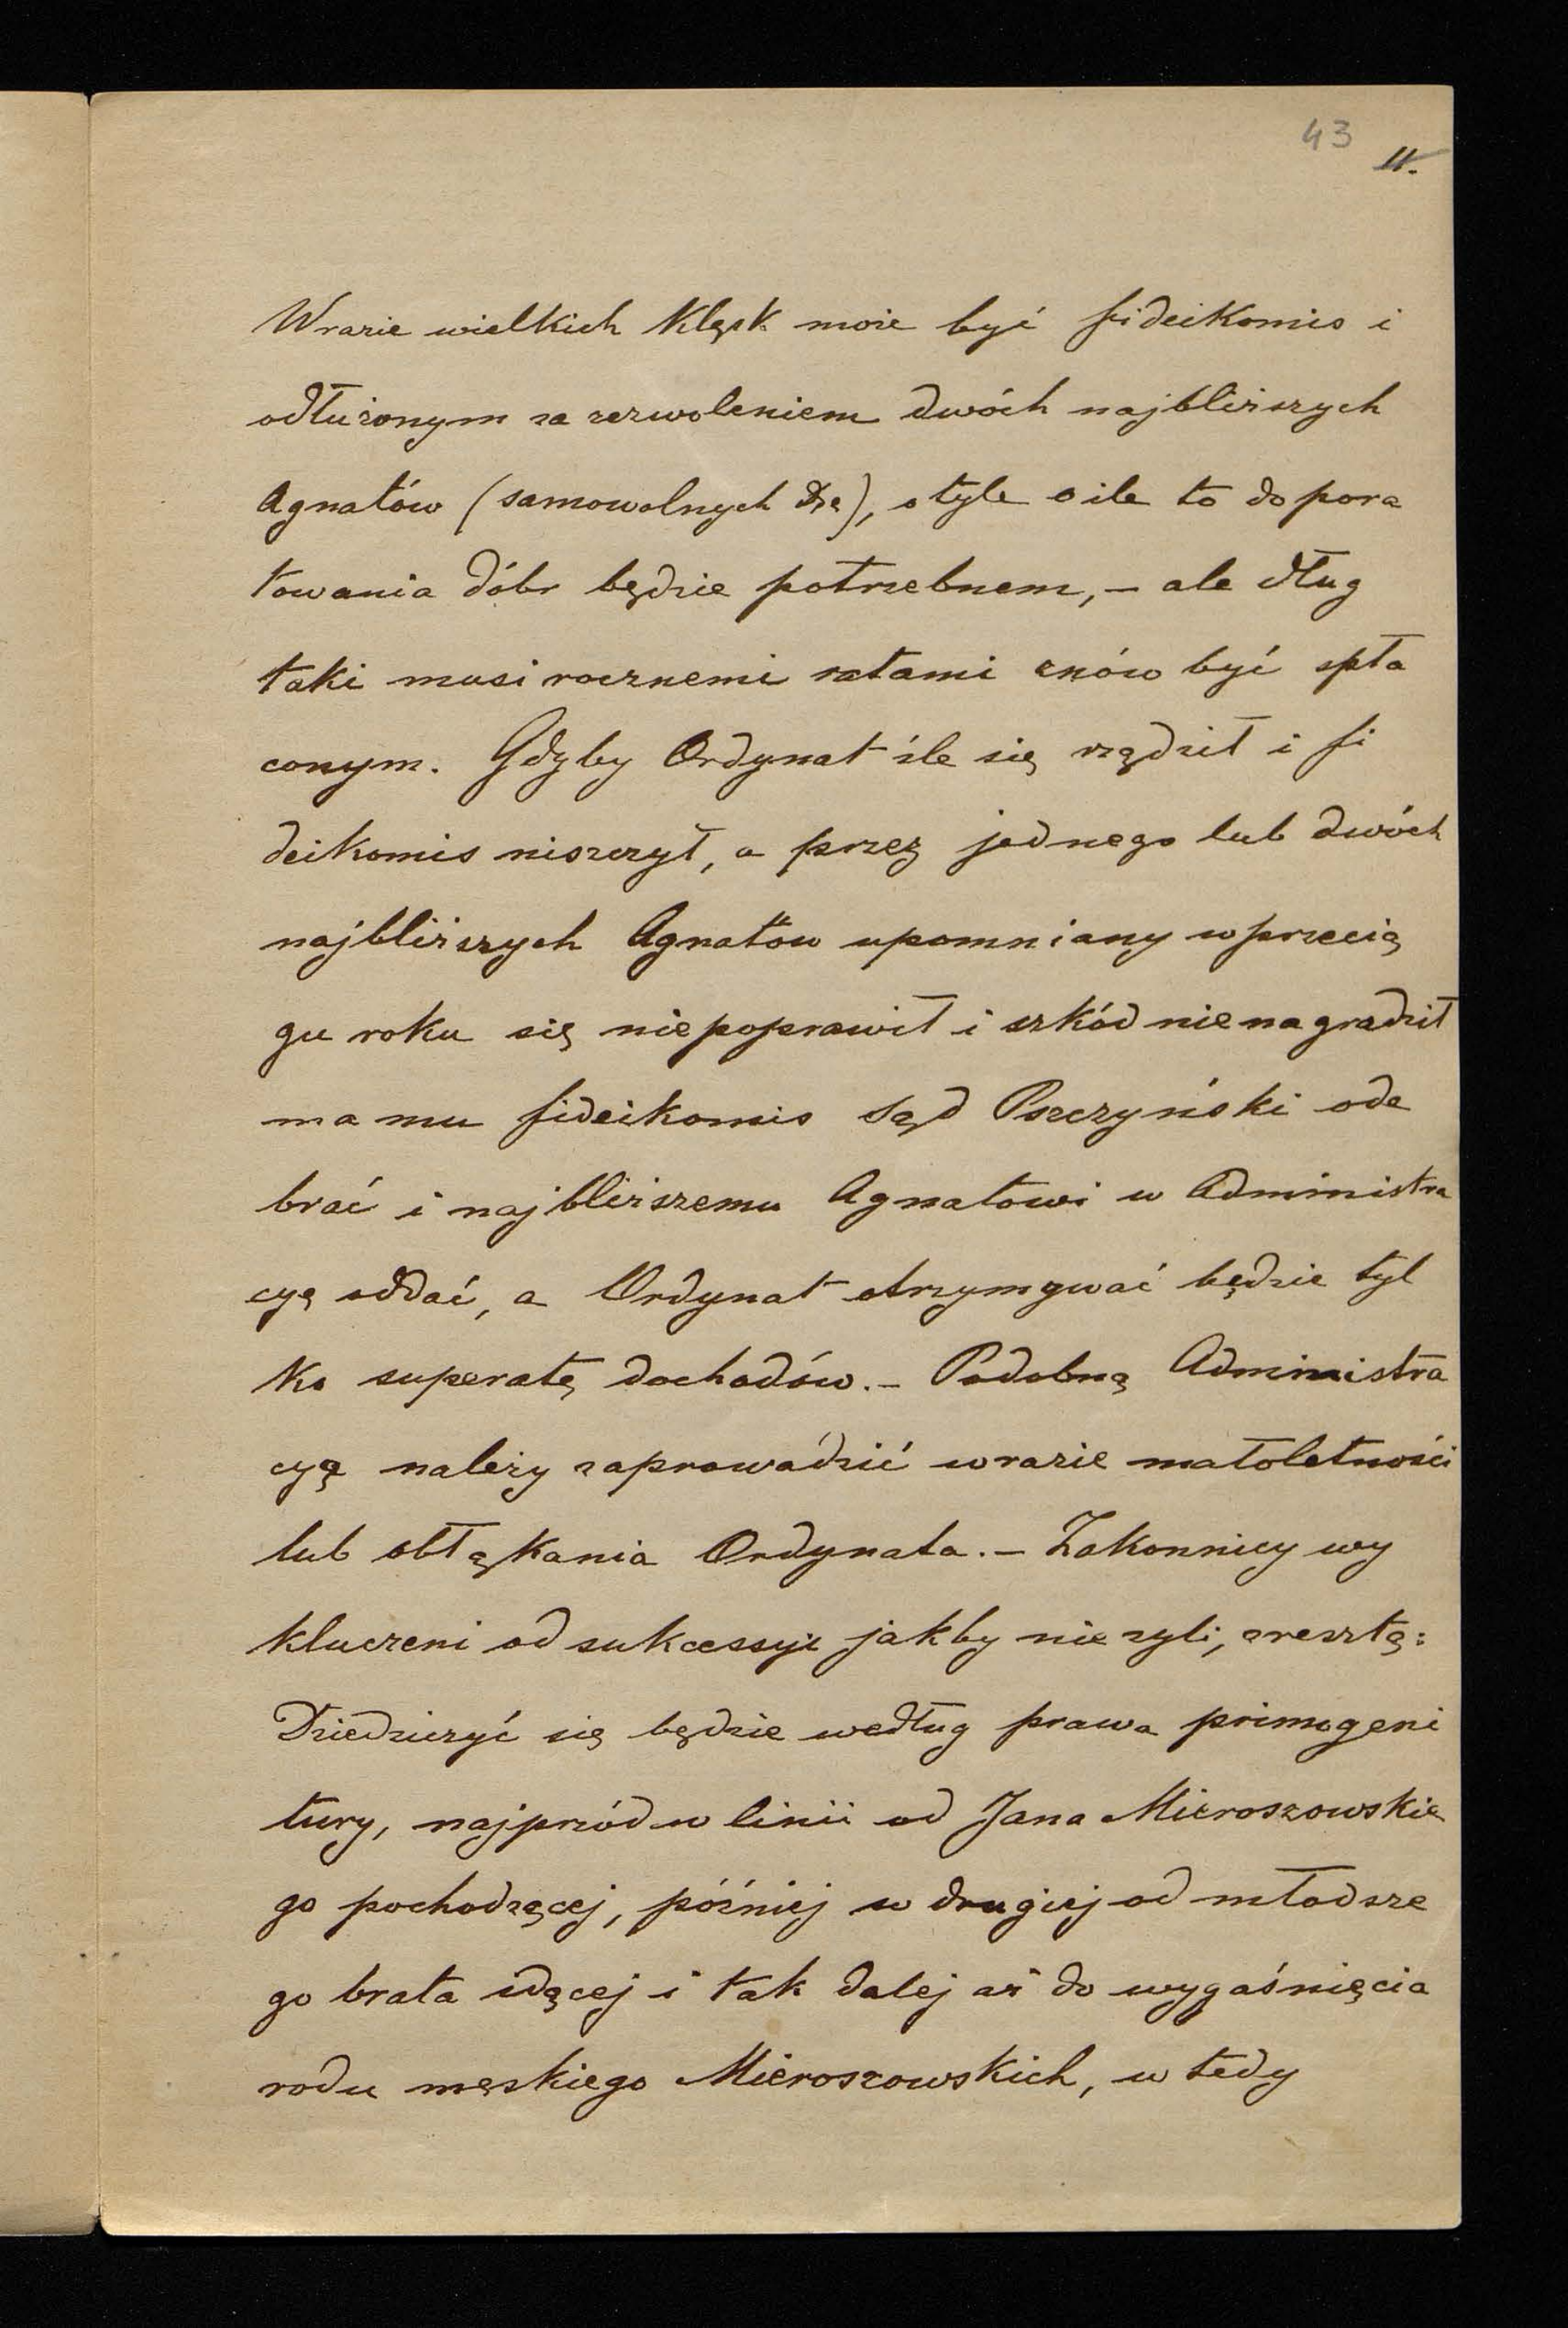 43
11.
Wrazie wielkich klęsk może być fideikomis i
odłużonym za zezwoleniem dwóch najbliższych
Agnatów (samowolnych), o tyle o ile to do pora
towania dóbr będzie potrzebnem, – ale dług
taki musi rocznemi ratami znów być spła
conym. Gdyby Ordynat źle się rządził i fi
deikomis niszczył, a przez jednego lub dwóch
najbliższych Agnatów upomniany w przecią
gu roku się niepoprawił i szkód nienagradził
ma mu fideikomis Sąd Pszczyński ode
brać i najbliższemu Agnatowi w Administra
cyą oddać, a Ordynat otrzymywać będzie tyl
ko superatę dochodów. – Podobną Administra
cyą należy zaprowadzić wrazie małoletności
lub obłąkania Ordynata. – Zakonnicy wy
kluczeni od sukcessyi jakby nie zyli, zresztą:
Dziedziczyć się będzie według prawa primogeni
tury, najprzód w linii od Jana Mieroszowskie
go pochodzącej, później w drugiej od młodsze
go brata idącej i tak dalej aż do wygaśnięcia
rodu męskiego Mieroszowskich, w tedy